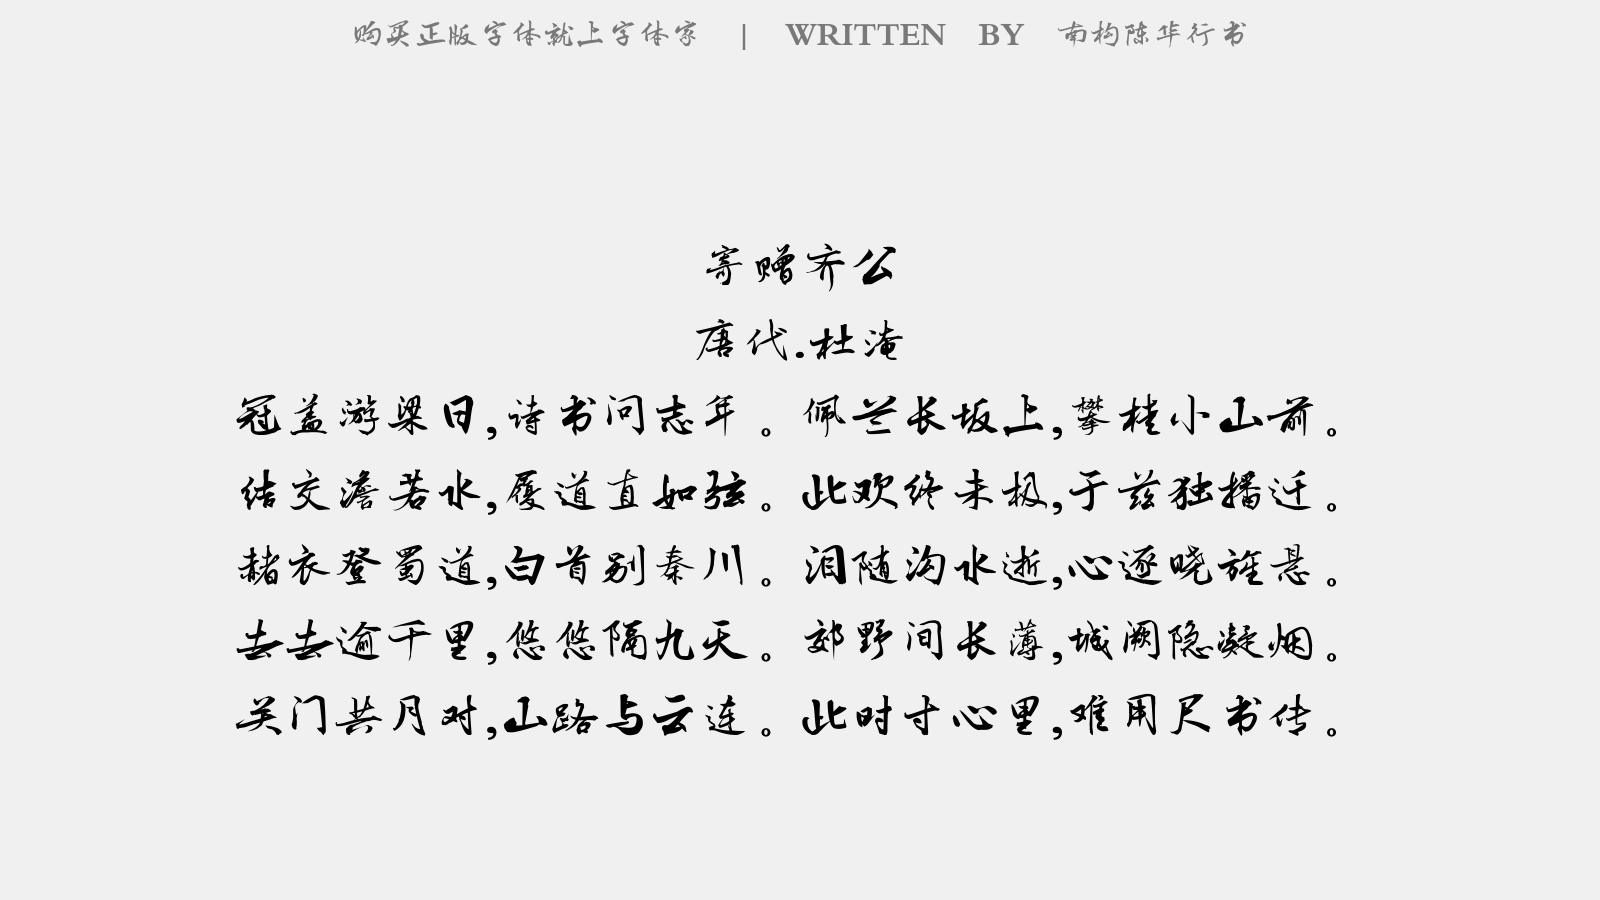 购买正版字体就上字体家 | WRITTEN BY 南构陈华行书
寄赠齐公
唐代.杜淹
冠盖游梁日,诗书问志年。佩兰长坂上,攀桂小山前。
结交澹若水,履道直如弦。此欢终未极,于兹独播迁。
赭衣登蜀道,白首别秦川。泪随沟水逝,心逐晓旌悬。
去去逾千里,悠悠隔九天。郊野间长薄,城阙隐凝烟。
关门共月对,山路与云连。此时寸心里,难用尺书传。